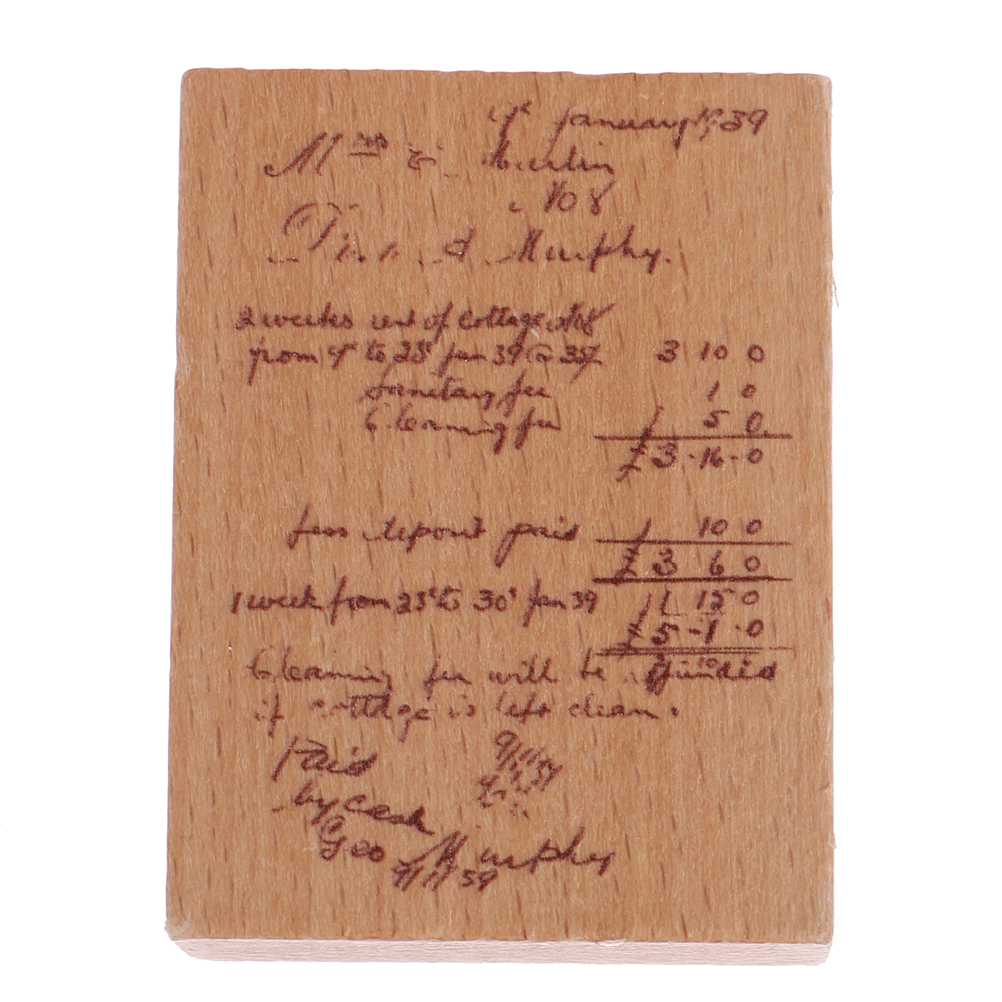 January 1939
Mrs
No 8
Murphy.
2 weeks rent of Cottage No 8
from 9th to 23rd Jan 39 @ 35/- 3 10 0
Sanitary fee 1 0
Cleaning fee 5 0
£3-16-0
less deposit paid 10 0
£ 3 6 0
1 week from 23rd to 30th Jan 39 1 15 0
£5-1-0
Cleaning fee will be refunded
if cottage is left clean.
Paid
by cash
Geo Murphy
9/1/39